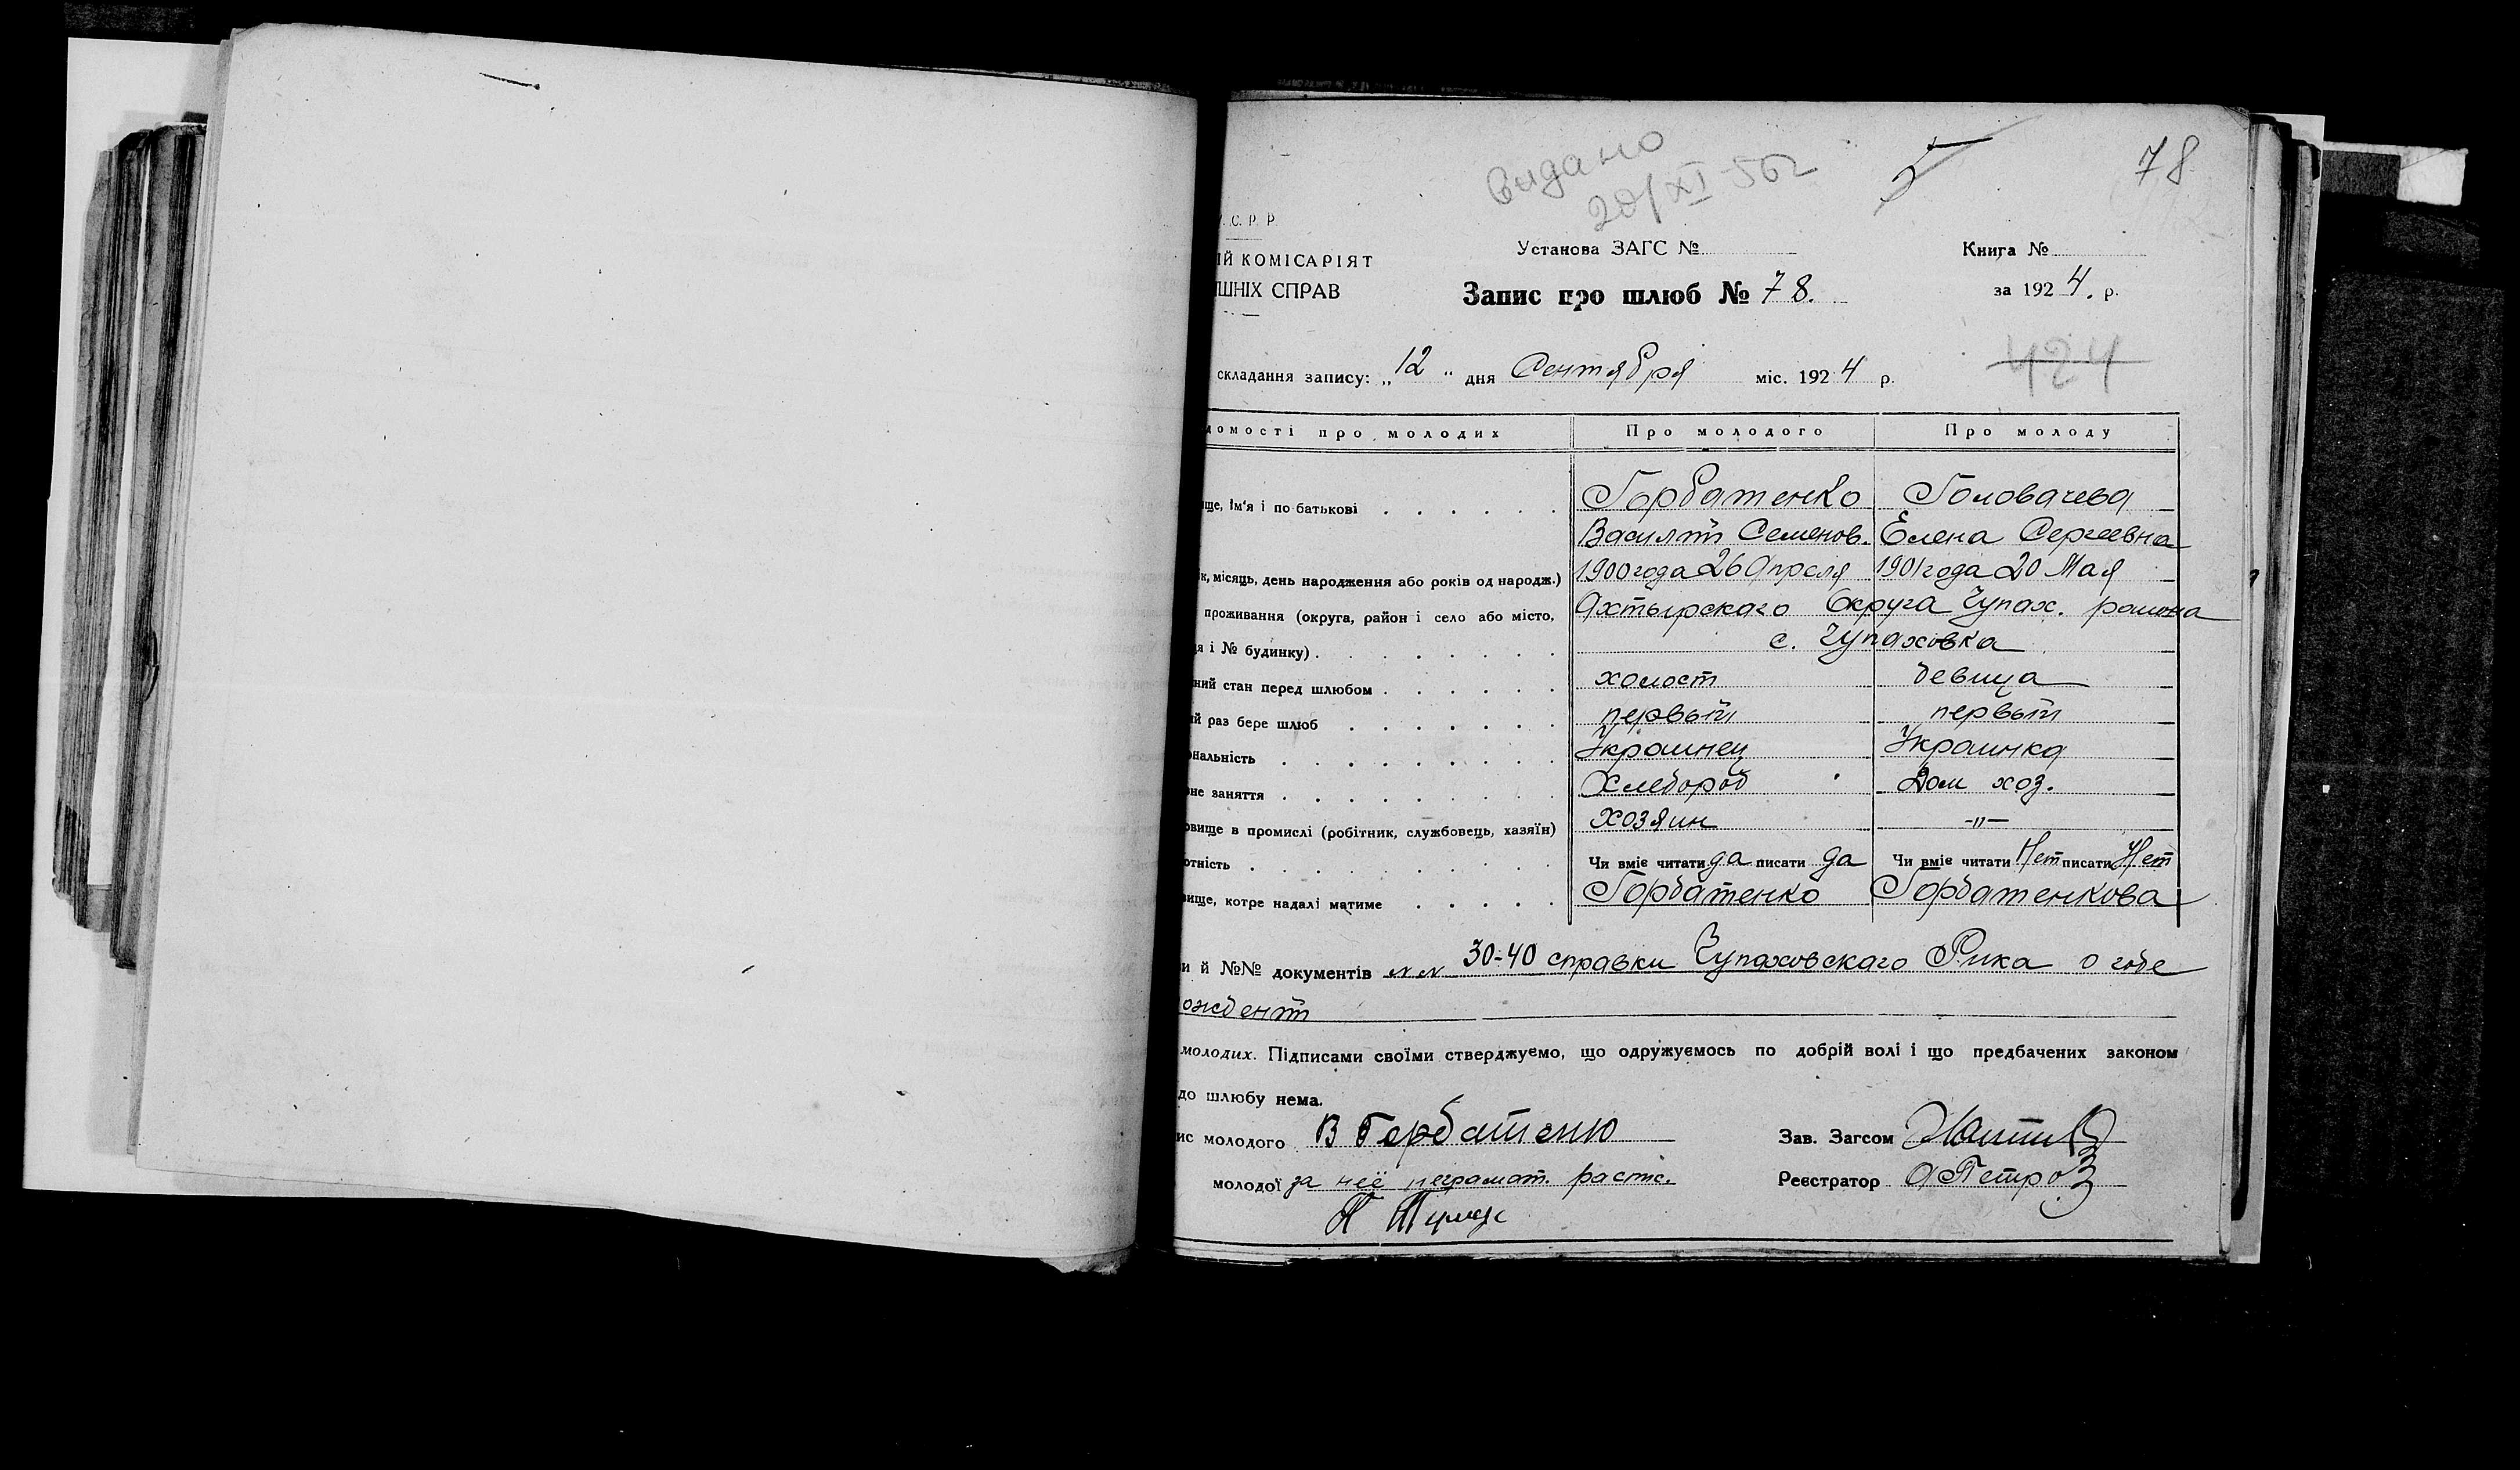 видано
20/XI-56г
5
78
.С.Р.Р.
ІЙ КОМІСАРІЯТ
ІШНІХ СПРАВ
Установа ЗАГС №
Книга №
Запис про шлюб № 78.
за 1924. р.
складання запису: „12" дня Сентября міс. 1924 р.
424
домості про молодих Про молодого Про молоду
ще, ім'я і по батькові Горбатенко Головачева
Василий Семенов. Елена Сергеевна
к, місяць, день народження або років од народж.) 1900 года 26 Апреля 1901 года 20 Мая
проживання (округа, район і село або місто, Ахтырскаго Округа Чупах. района
я і № будинку) с. Чупаховка
ний стан перед шлюбом холост девица
ий раз бере шлюб первый первый
ональність Украинец Украинка
не заняття Хлебороб Дом хоз.
овище в промислі (робітник, службовець, хазяїн) хозяин -"-
отність Чи вміє читати да писати да Чи вміє читати Нет писати Нет
вище, котре надалі матиме Горбатенко Горбатенкова
и й №№ документів №№ 30-40 справки Чупаховскаго Рика о годе
ождений
молодих. Підписами своїми стверджуємо, що одружуємось по добрій волі і що предбачених законом
до шлюбу нема.
ис молодого В Горбатенко Зав. Загсом
молодої за неё неграмот. распс. Реєстратор А Петров